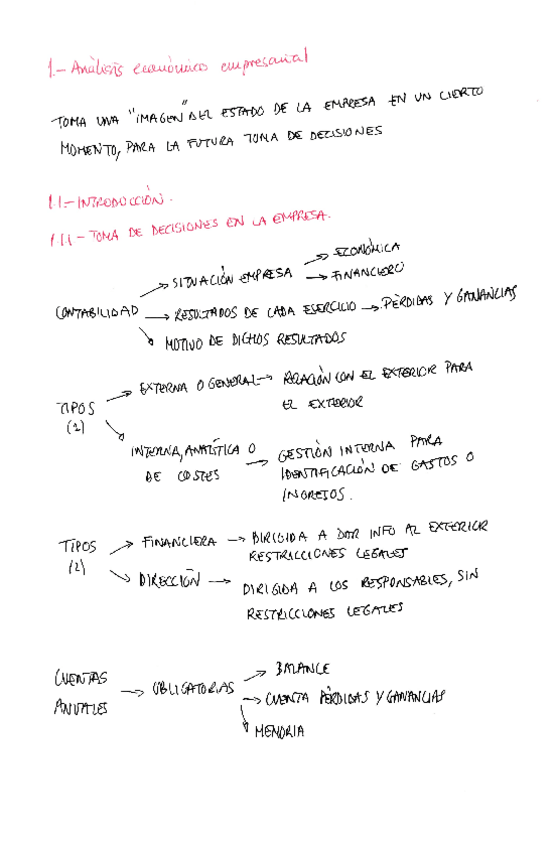 1.- Análisis económico empresarial
TOMA UNA "IMAGEN" DEL ESTADO DE LA EMPRESA EN UN CIERTO
MOMENTO, PARA LA FUTURA TOMA DE DECISIONES
1.1.- INTRODUCCIÓN.
1.1.1- TOMA DE DECISIONES EN LA EMPRESA.
CONTABILIDAD → SITUACIÓN EMPRESA → ECONÓMICA
→ FINANCIERO
→ RESULTADOS DE CADA ESERCICIO → PÈRDIDAS Y GANANCIAS
→ MOTIVO DE DICHOS RESULTADOS
TIPOS (1) → EXTERNA O GENERAL → RELACIÓN CON EL EXTERIOR PARA
EL EXTERIOR
→ INTERNA, ANALÍTICA O
DE COSTES → GESTIÓN INTERNA PARA
IDENTIFICACIÓN DE GASTOS O
INGRESOS.
TIPOS (2) → FINANCIERA → DIRIGIDA A DAR INFO AL EXTERIOR
RESTRICCIONES LEGALES
→ DIRECCIÓN → DIRIGIDA A LOS RESPONSABLES, SIN
RESTRICCIONES LEGALES
CUENTAS
ANUALES → OBLIGATORIAS → BALANCE
→ CUENTA PÈRDIDAS Y GANANCIAS
→ MEMORIA